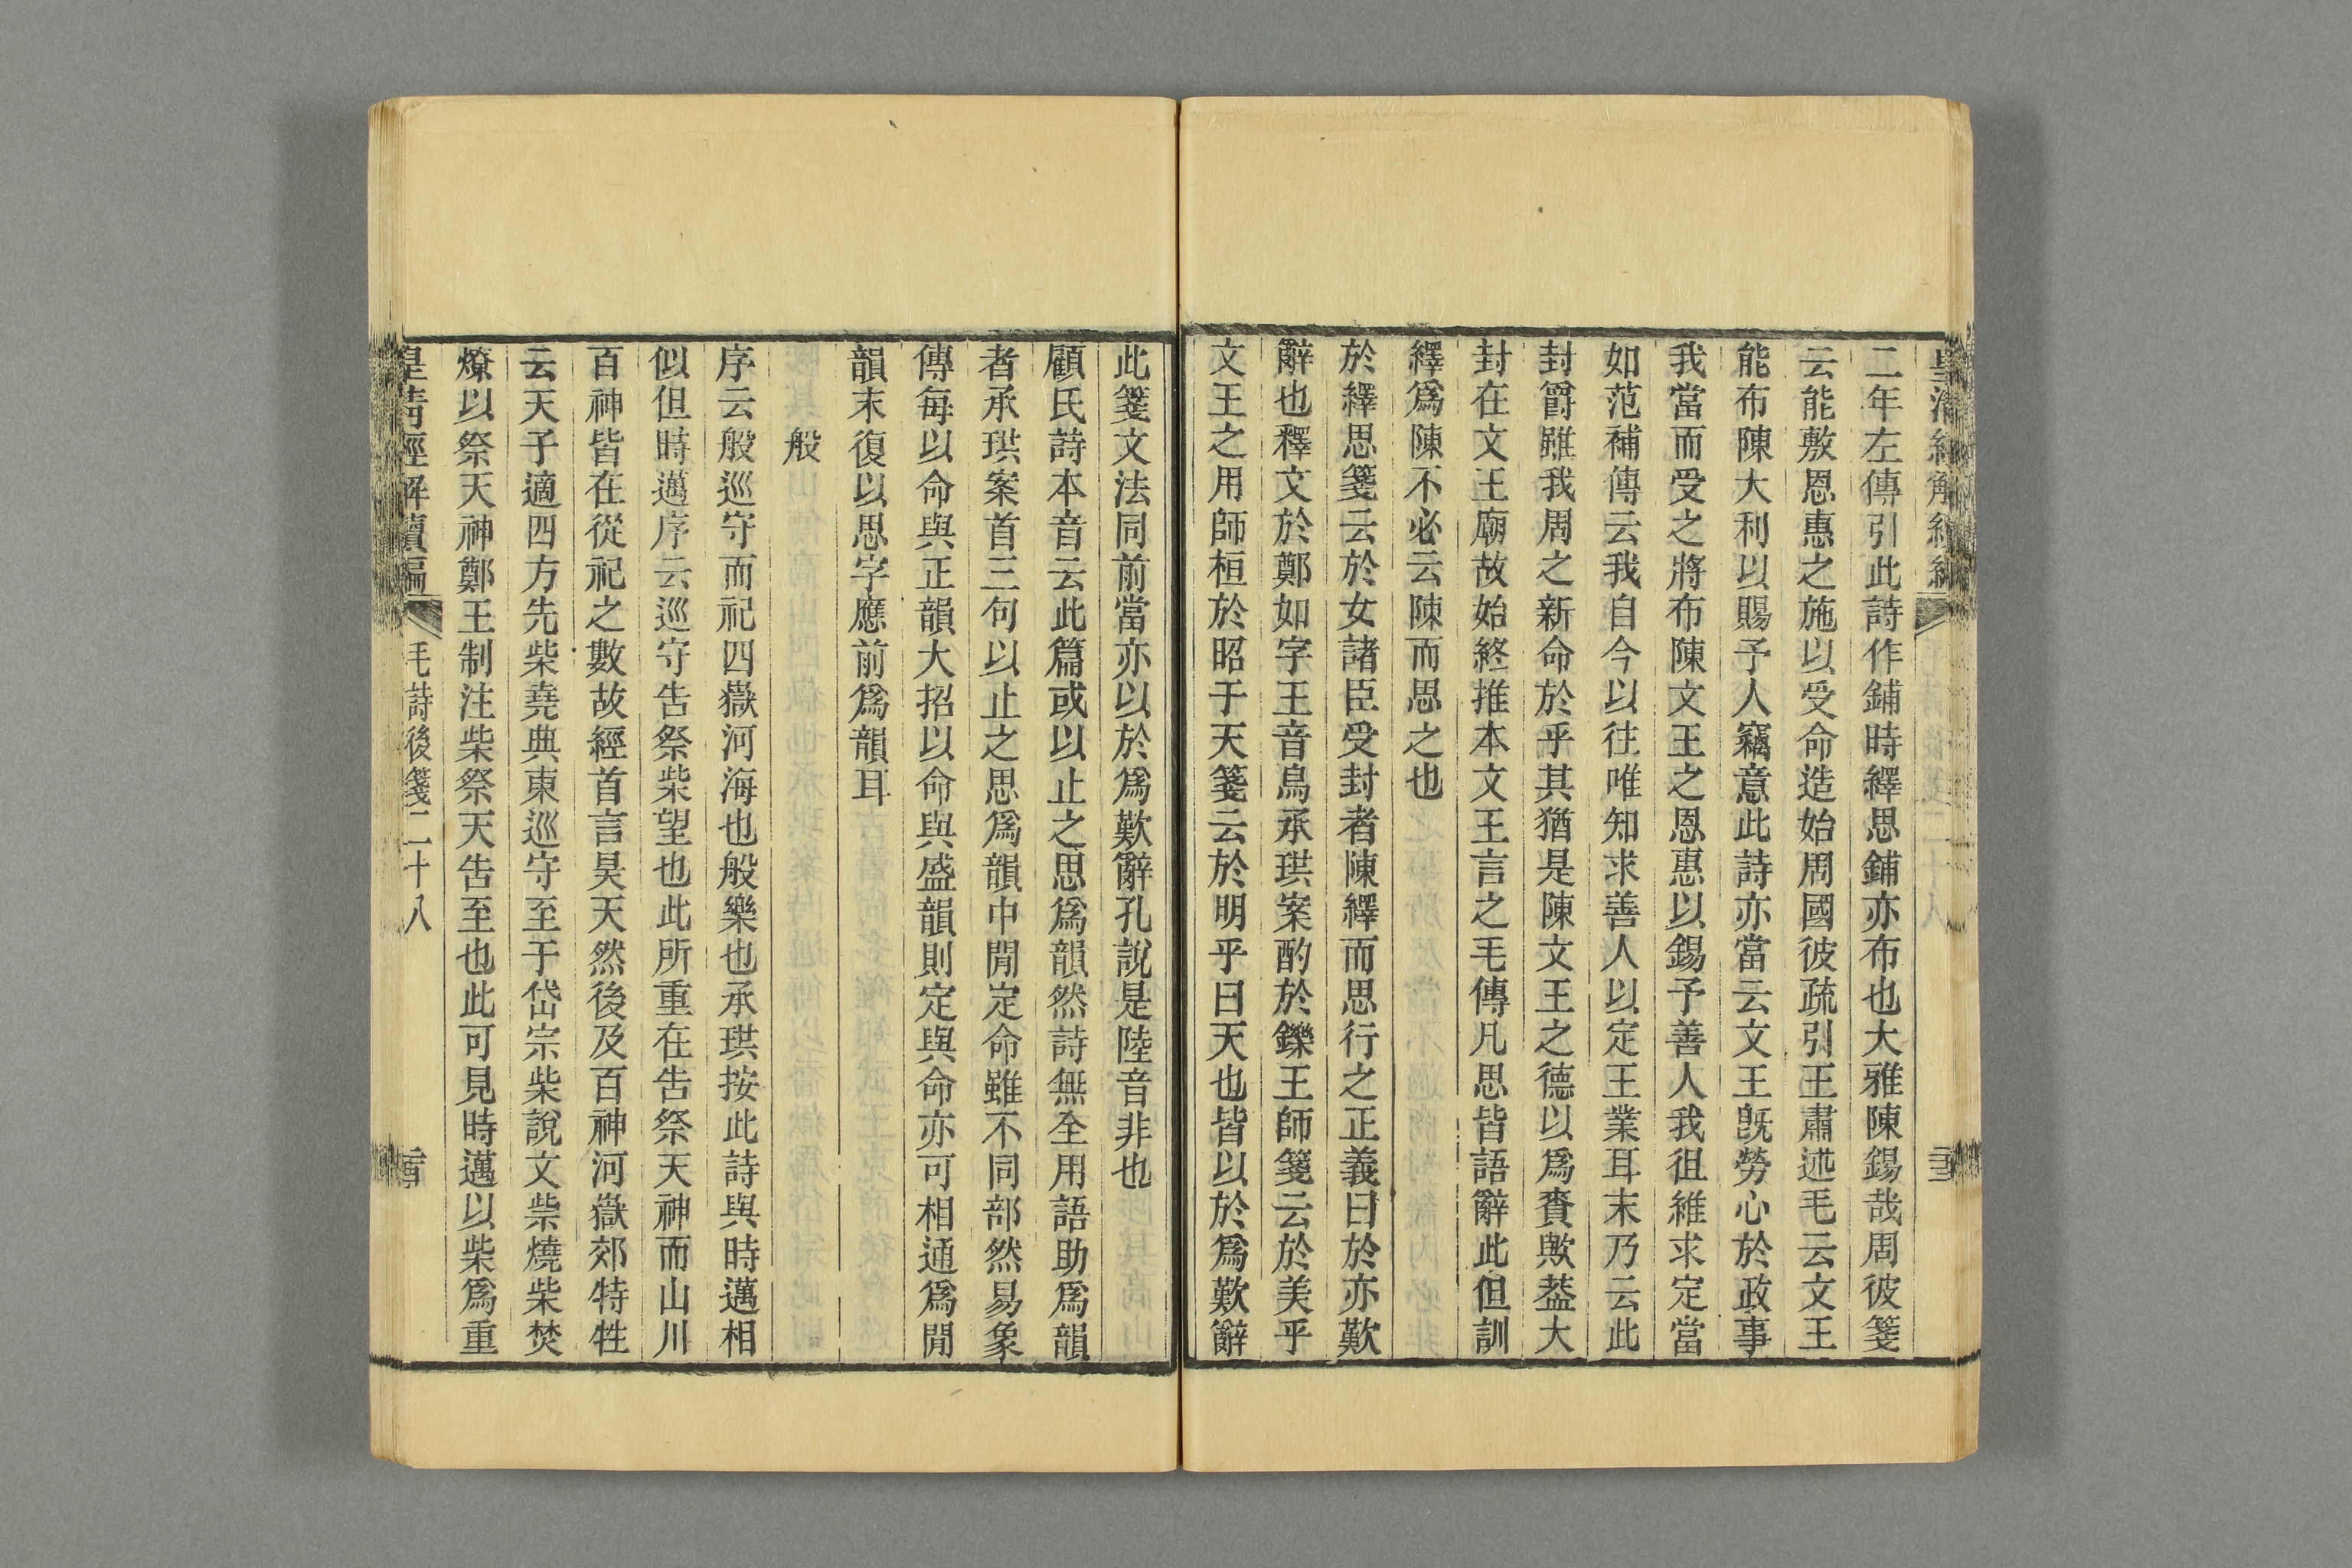 二年左傳引此詩作鋪時繹思鋪亦布也大雅陳錫哉周彼箋
云能敷恩惠之施以受命造始周國彼疏引王肅述毛云文王
能布陳大利以賜予人竊意此詩亦當云文王旣勞心於政事
我當而受之將布陳文王之恩惠以錫予善人我徂維求定當
如范補傳云我自今以往唯知求善人以定王業耳末乃云此
封爵雖我周之新命於乎其猶是陳文王之德以爲賚歟葢大
封在文王廟故始終推本文王言之毛傳凡思皆語辭此但訓
繹爲陳不必云陳而思之也
於繹思箋云於女諸臣受封者陳繹而思行之正義曰於亦歎
辭也釋文於鄭如字王音烏承珙案酌於鑠王師箋云於美乎
文王之用師桓於昭于天箋云於明乎曰天也皆以於爲歎辭
此箋文法同前當亦以於爲歎辭孔說是陸音非也
顧氏詩本音云此篇或以止之思爲韻然詩無全用語助爲韻
者承珙案首三句以止之思爲韻中閒定命雖不同部然易象
傳每以命與正韻大招以命與盛韻則定與命亦可相通爲閒
韻末復以思字應前爲韻耳
般
序云般巡守而祀四嶽河海也般樂也承珙按此詩與時邁相
似但時邁序云巡守告祭柴望也此所重在告祭天神而山川
百神皆在從祀之數故經首言昊天然後及百神河嶽郊特牲
云天子適四方先柴堯典東巡守至于岱宗柴說文祡燒柴焚
燎以祭天神鄭王制注柴祭天告至也此可見時邁以柴爲重
皇清經解續編
毛詩後箋二十八